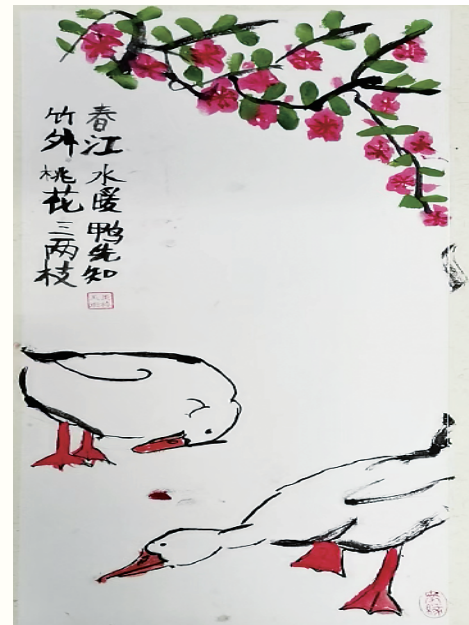 春江水暖鸭先知
竹外桃花三两枝